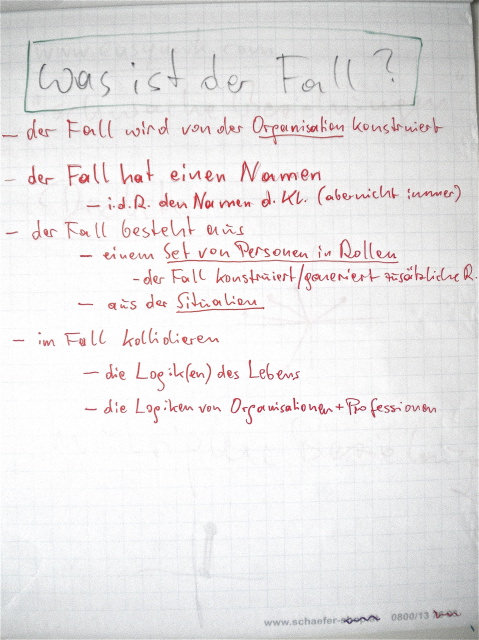 was ist der Fall?
– der Fall wird von der Organisation konstruiert
– der Fall hat einen Namen
– i.d.R. den Namen d. Kl. (aber nicht immer)
– der Fall besteht aus
– einem Set von Personen in Rollen
– der Fall konstruiert/generiert zusätzliche R.
– aus der Situation
– im Fall kollidieren
– die Logik(en) des Lebens
– die Logiken von Organisationen + Professionen
www.schaefer- 0800/13